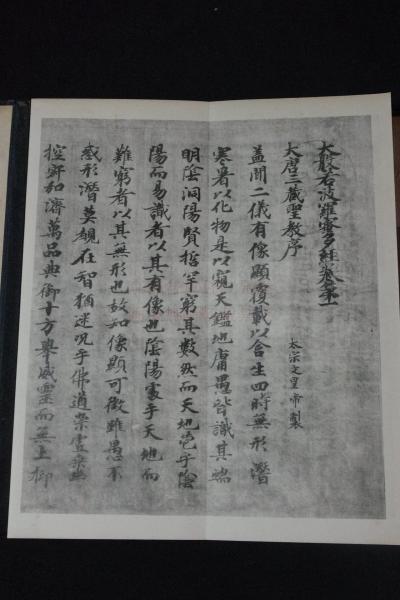 大般若波羅蜜多經卷第一
大唐三藏聖教序
太宗文皇帝製
蓋聞二儀有像顯覆載以含生四時無形潛
寒暑以化物是以窺天鑑地庸愚皆識其端
明陰洞陽賢哲罕窮其數然而天地苞乎陰
陽而易識者以其有像也陰陽處乎天地而
難窮者以其無形也故知像顯可徵雖愚不
惑形潛莫覩在智猶迷況乎佛道崇虛乘幽
控寂和濟萬品典御十方舉威靈而無上抑